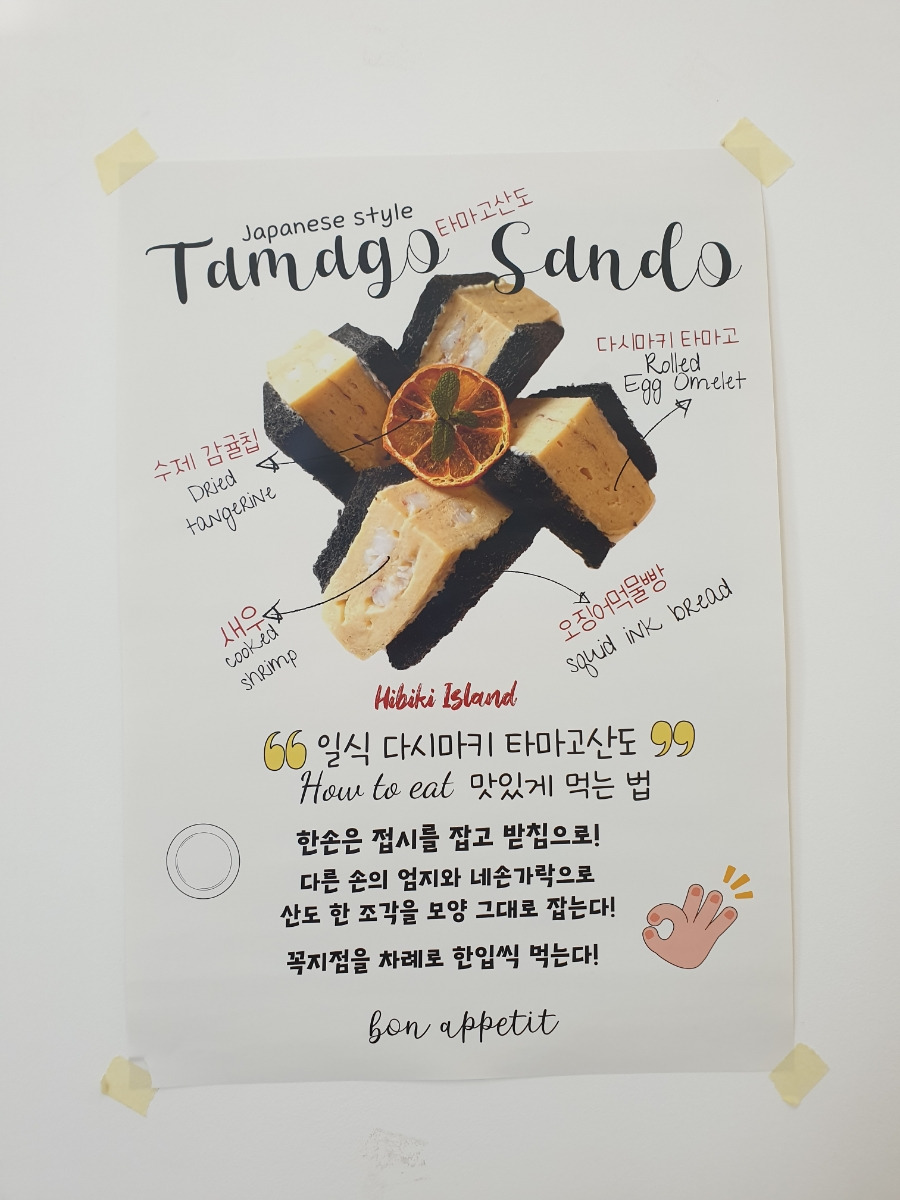 Japanese style
타마고산도
Tamago Sando
다시마키 타마고
Rolled
Egg Omelet
수제 감귤칩
Dried
tangerine
새우
cooked
shrimp
오징어먹물빵
squid ink bread
Hibiki Island
“ 일식 다시마키 타마고산도 ”
How to eat 맛있게 먹는 법
한손은 접시를 잡고 받침으로!
다른 손의 엄지와 네손가락으로
산도 한 조각을 모양 그대로 잡는다!
꼭지점을 차례로 한입씩 먹는다!
bon appetit